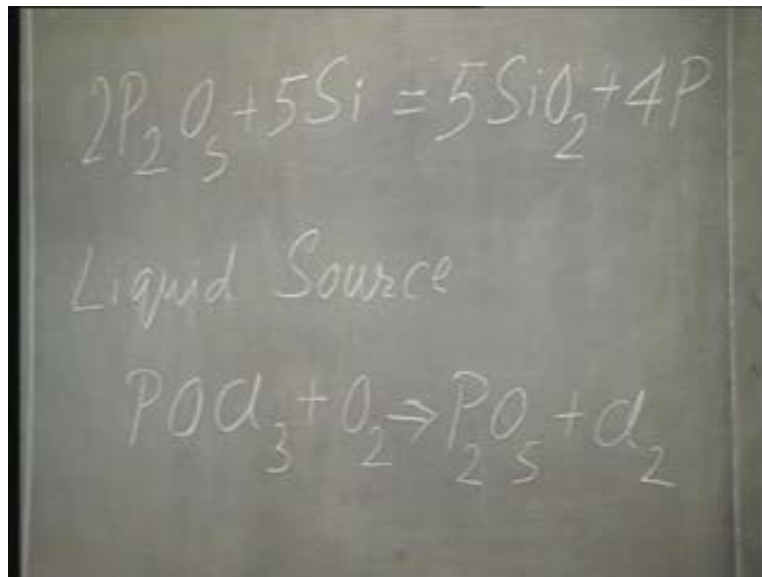 2P₂O₅+5Si = 5SiO₂+4P
Liquid Source
POCl₃+O₂⇒P₂O₅+Cl₂